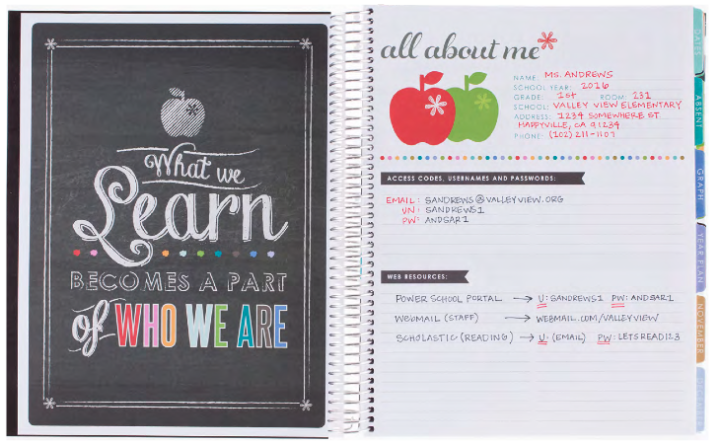 What we
Learn
BECOMES A PART
of WHO WE ARE
all about me*
NAME: MS. ANDREWS
SCHOOL YEAR: 2016
GRADE: 1st ROOM: 231
SCHOOL: VALLEY VIEW ELEMENTARY
ADDRESS: 1234 SOMEWHERE ST.
HAPPYVILLE, CA 91234
PHONE: (102) 211-1107
ACCESS CODES, USERNAMES AND PASSWORDS:
EMAIL: SANDREWS@VALLEYVIEW.ORG
UN: SANDREWS1
PW: ANDSAR1
WEB RESOURCES:
POWER SCHOOL PORTAL → U: SANDREWS1 PW: ANDSAR1
WEBMAIL (STAFF) → WEBMAIL.COM/VALLEYVIEW
SCHOLASTIC (READING) → U: (EMAIL) PW: LETSREAD123
DATES
ABSENT
GRAPH
YEAR PLAN
NOVEMBER